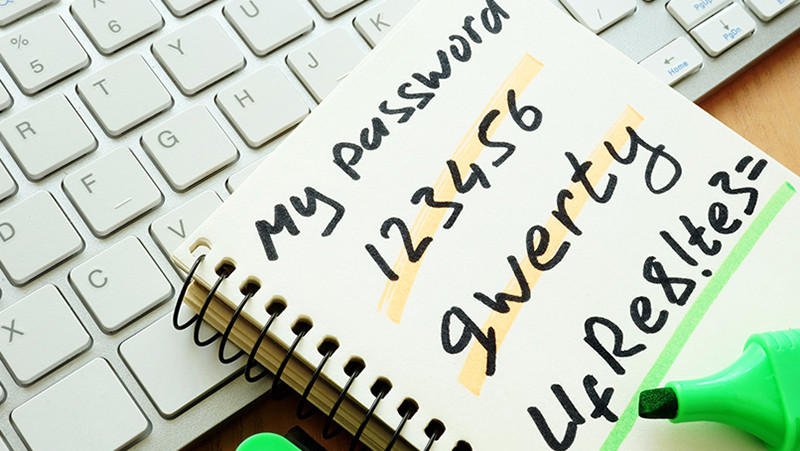 My password
123456
qwerty
UfRe8!te3=
% 5
^ 6
R
T
Y
U
D
F
G
H
J
K
X
C
V
PgUp
PgDn
Home